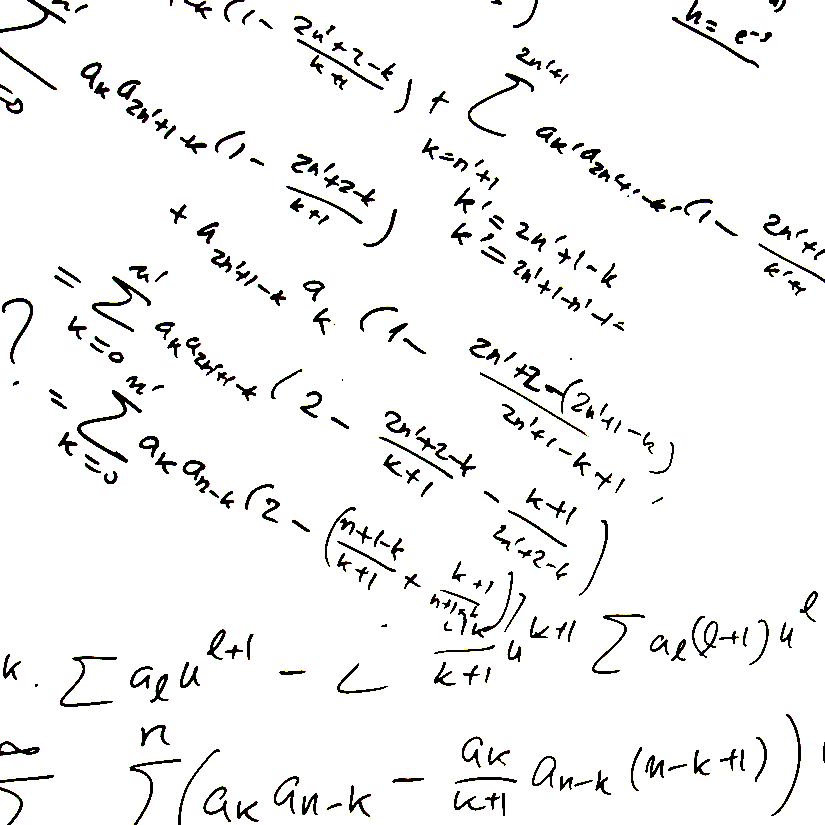 h = e^{-s}
k(1 - \frac{2n'+2-k}{k+1}) + \sum_{k=n'+1}^{2n'+1} a_{k'} a_{2n'+1-k'} (1 - \frac{2n'+1}{k'+1}
\sum_{=0}^{n'} a_k a_{2n'+1-k} (1 - \frac{2n'+2-k}{k+1})
k' = 2n'+1-k
k' = 2n'+1-n'-1 =
+ a_{2n'+1-k} a_k (1 - \frac{2n'+2-(2n'+1-k)}{2n'+1-k+1})
= \sum_{k=0}^{n'} a_k a_{2n'+1-k} (2 - \frac{2n'+2-k}{k+1} - \frac{k+1}{2n'+2-k})
? = \sum_{k=0}^{n'} a_k a_{n-k} (2 - (\frac{n+1-k}{k+1} + \frac{k+1}{n+1-k}))
k. \sum a_l u^{l+1} - \sum \frac{a_k}{k+1} u^{k+1} \sum a_l (l+1) u^l
\sum^{\infty} \sum^{n} (a_k a_{n-k} - \frac{a_k}{k+1} a_{n-k} (n-k+1))